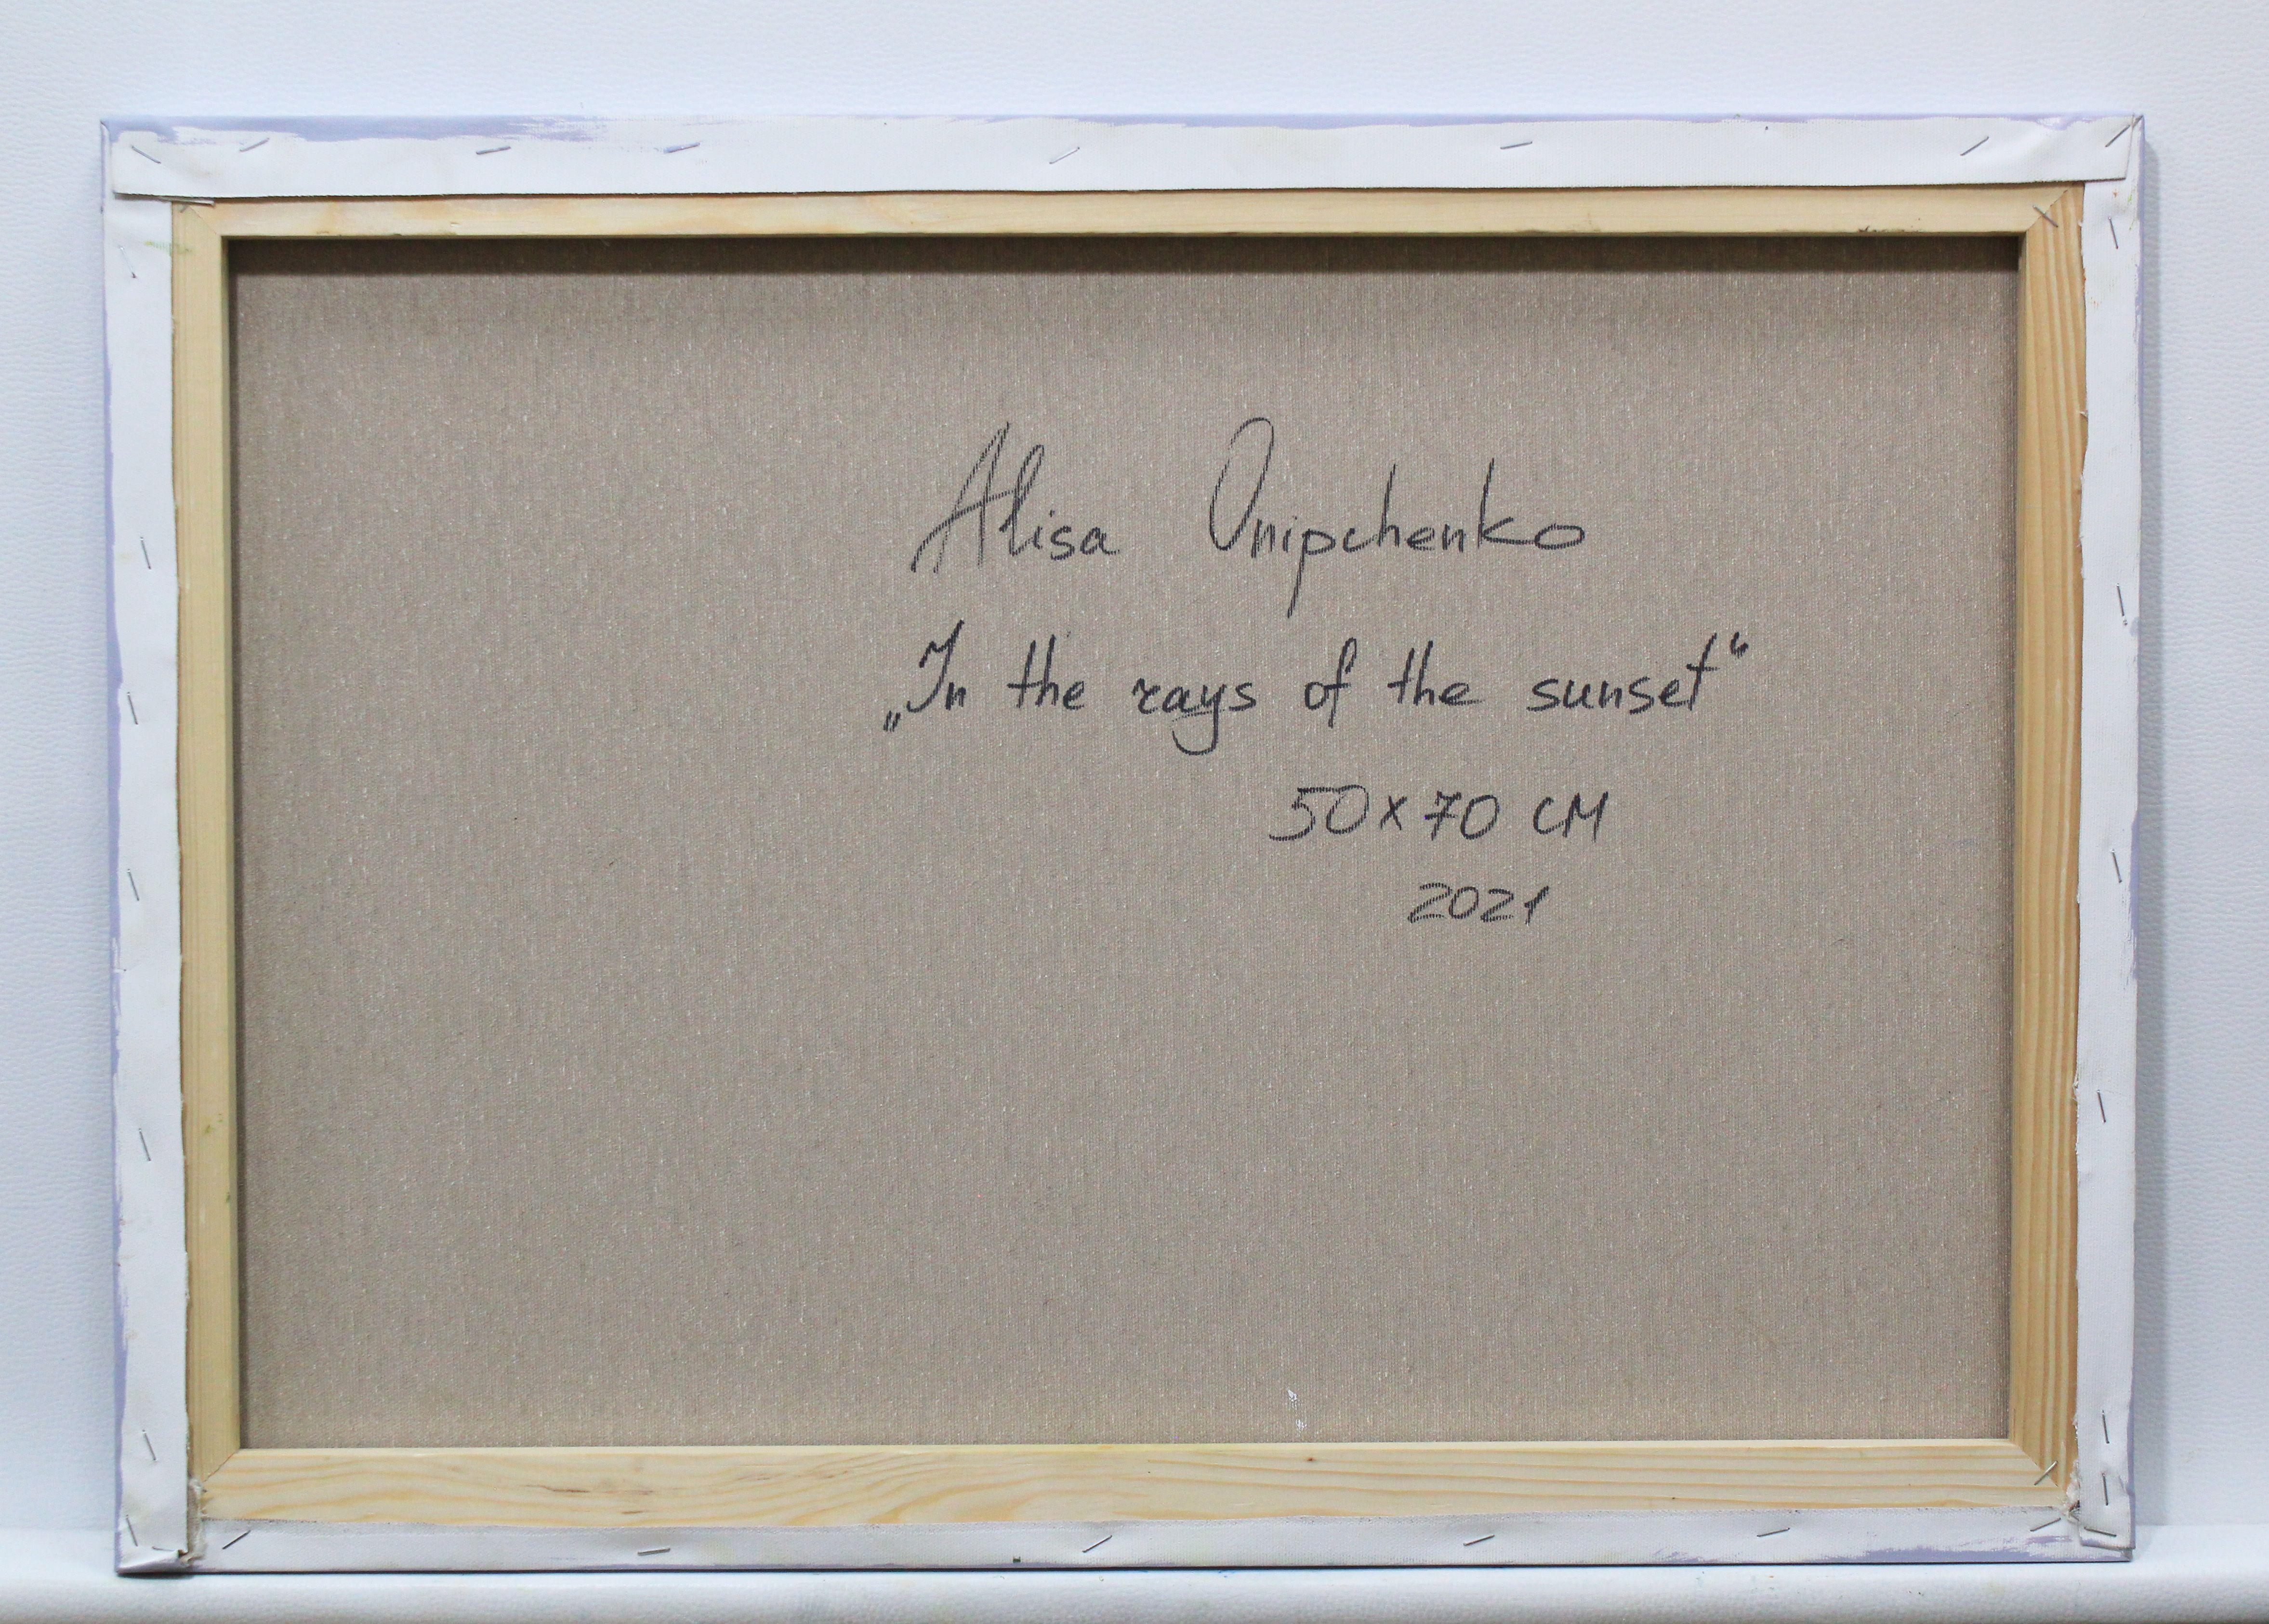 Alisa Onipchenko
„In the rays of the sunset“
50x70 CM
2021